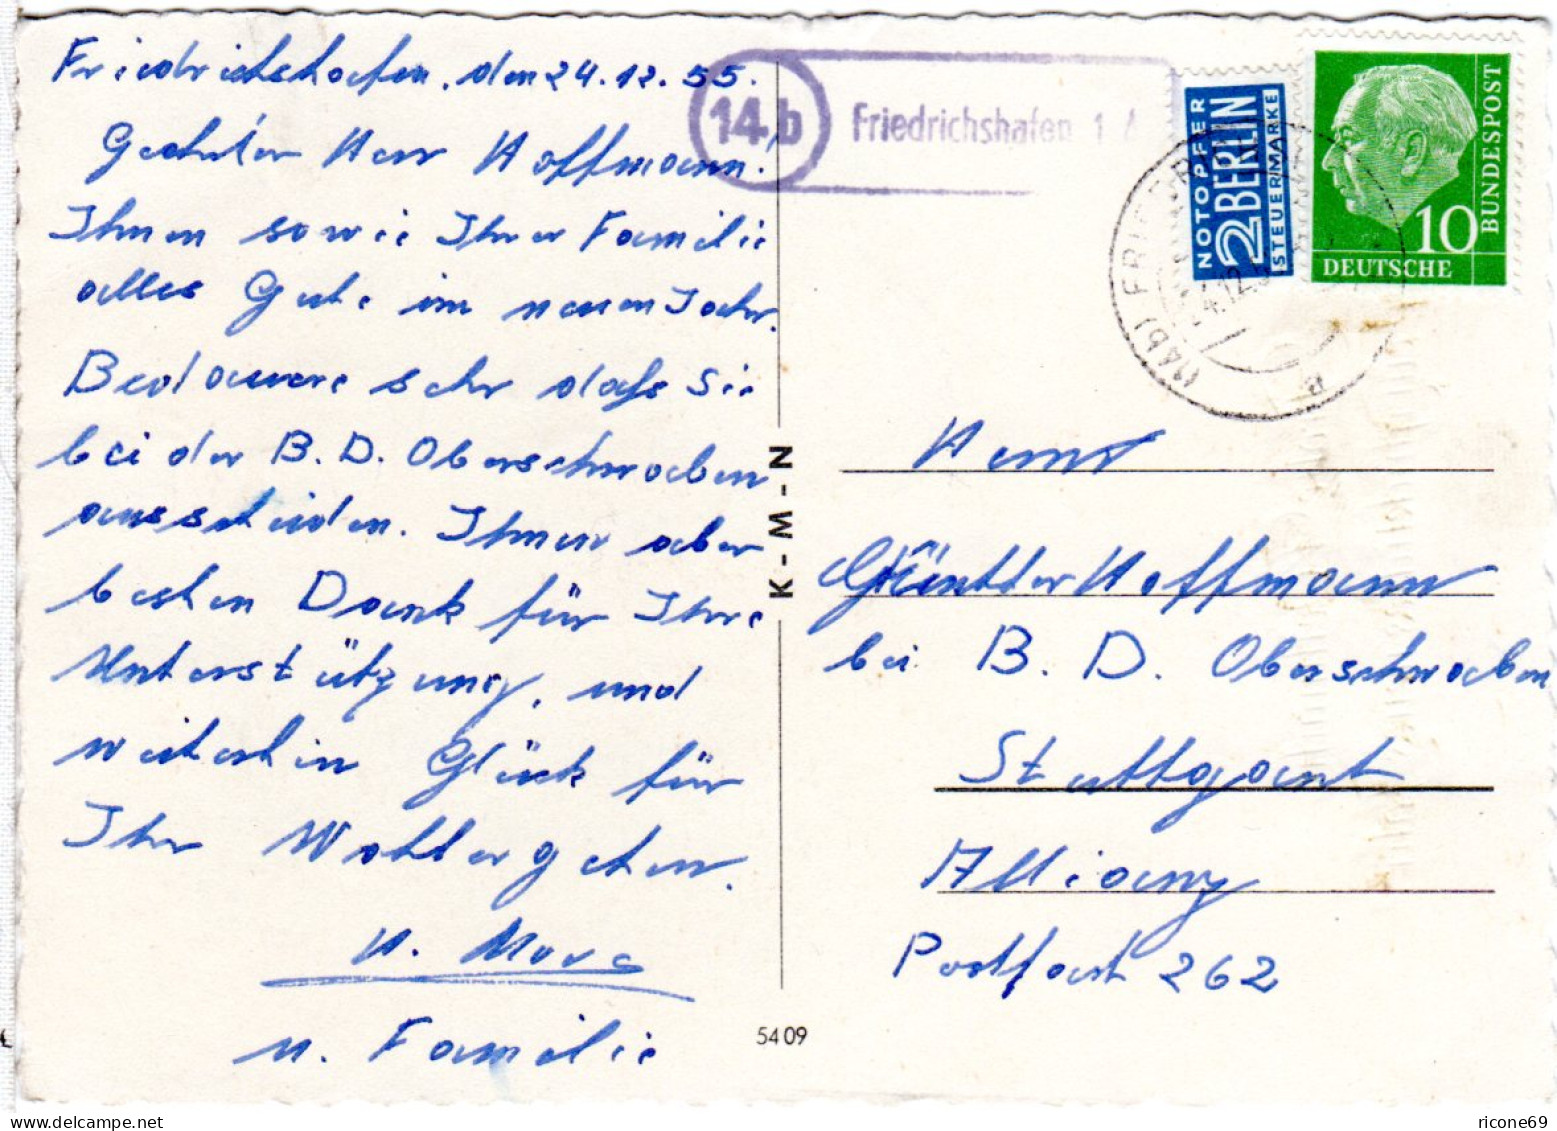 Friedrichshafen, den 24.12.55.
Geehrter Herr Hoffmann!
Ihnen sowie Ihrer Familie
alles Gute im neuen Jahr.
Bedauere sehr daß Sie
bei der B. D. Oberschwaben
ausscheiden. Ihnen aber
besten Dank für Ihre
Unterstützung, und
weiterhin Glück für
Ihr Wohlergehen.
u. Familie
14b Friedrichshafen 1
NOTOPFER
2 BERLIN
STEUERMARKE
10
DEUTSCHE
BUNDESPOST
K-M-N
5409
Herrn
Günther Hoffmann
bei B. D. Oberschwaben
Stuttgart
Allianz
Postfach 262
ricone69